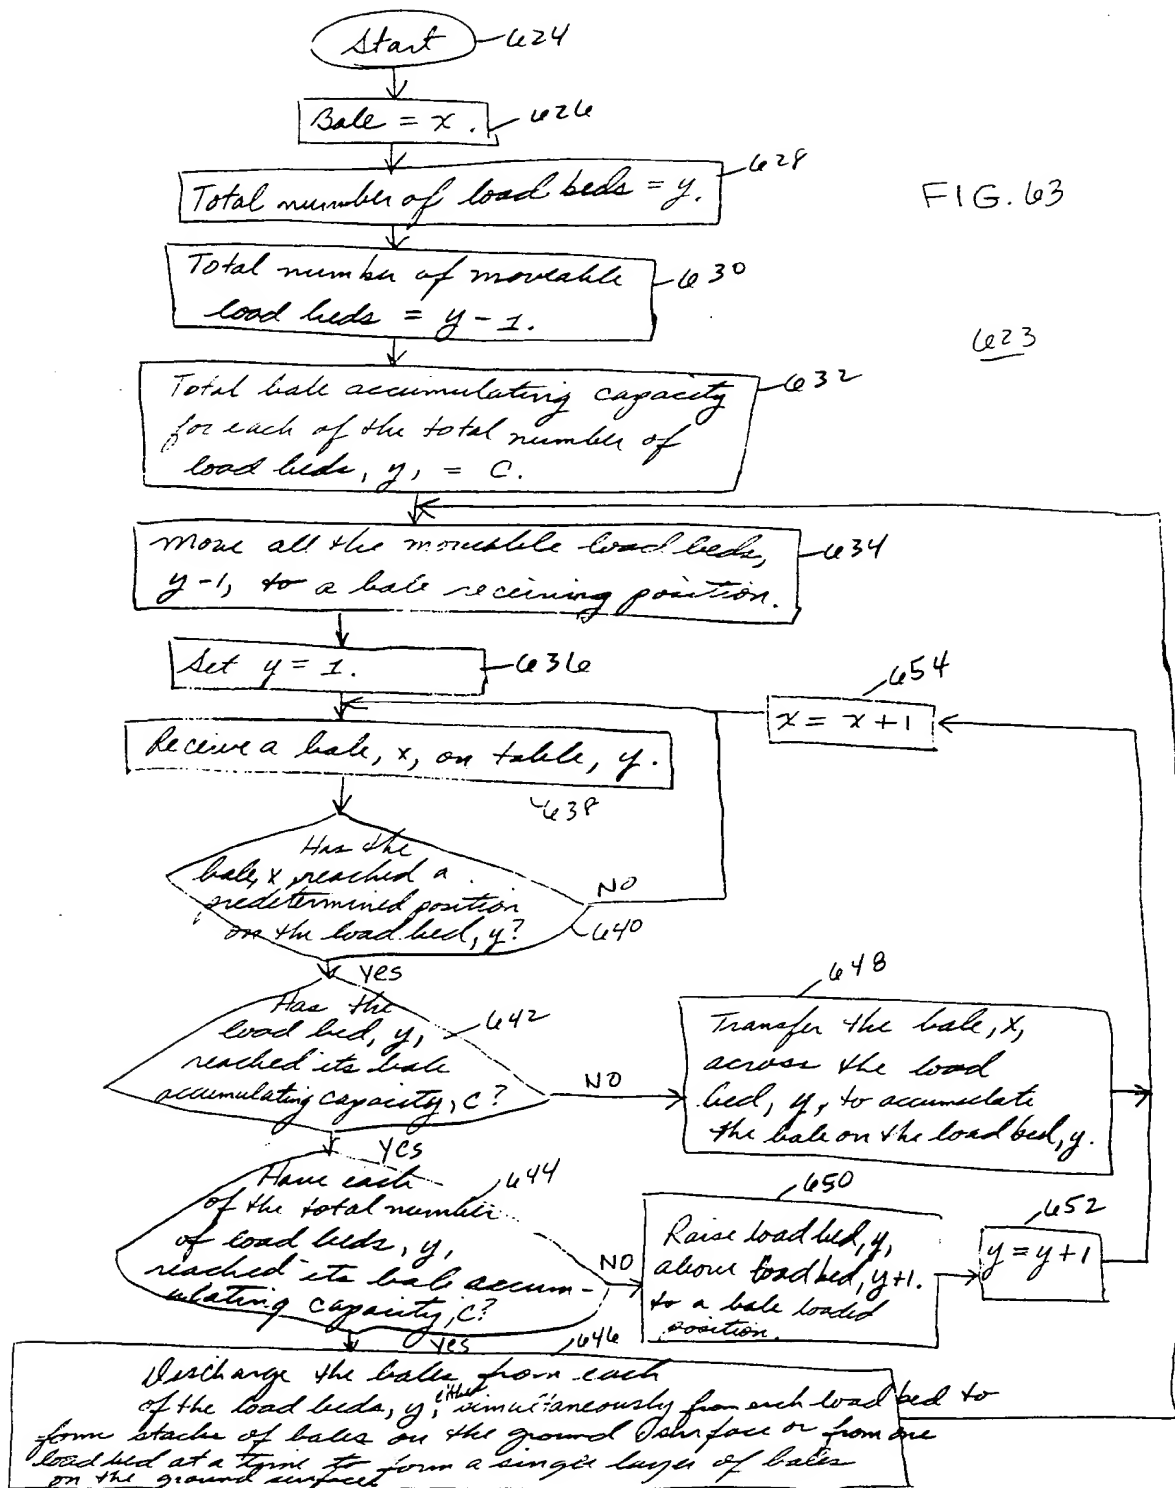 Start 624
Bale = x. 626
Total number of load beds = y. 628
FIG. 63
Total number of moveable 630
load beds = y - 1.
623
Total bale accumulating capacity 632
for each of the total number of
load beds, y, = C.
Move all the moveable load beds, 634
y-1, to a bale receiving position.
Set y = 1. 636
654
x = x + 1
Receive a bale, x, on table, y.
638
Has the
bale, x, reached a
predetermined position
on the load bed, y?
NO
640
Yes
Has the
load bed, y, 642
reached its bale
accumulating capacity, C?
NO
648
Transfer the bale, x,
across the load
bed, y, to accumulate
the bale on the load bed, y.
Yes
Have each 644
of the total number
of load beds, y,
reached its bale accum-
ulating capacity, C?
NO
650
Raise load bed, y,
above load bed, y+1.
to a bale loaded
position.
652
y = y + 1
Yes 646
Discharge the bales from each
of the load beds, y, either simultaneously from each load bed to
form stacks of bales on the ground surface or from one
load bed at a time to form a single layer of bales
on the ground surface